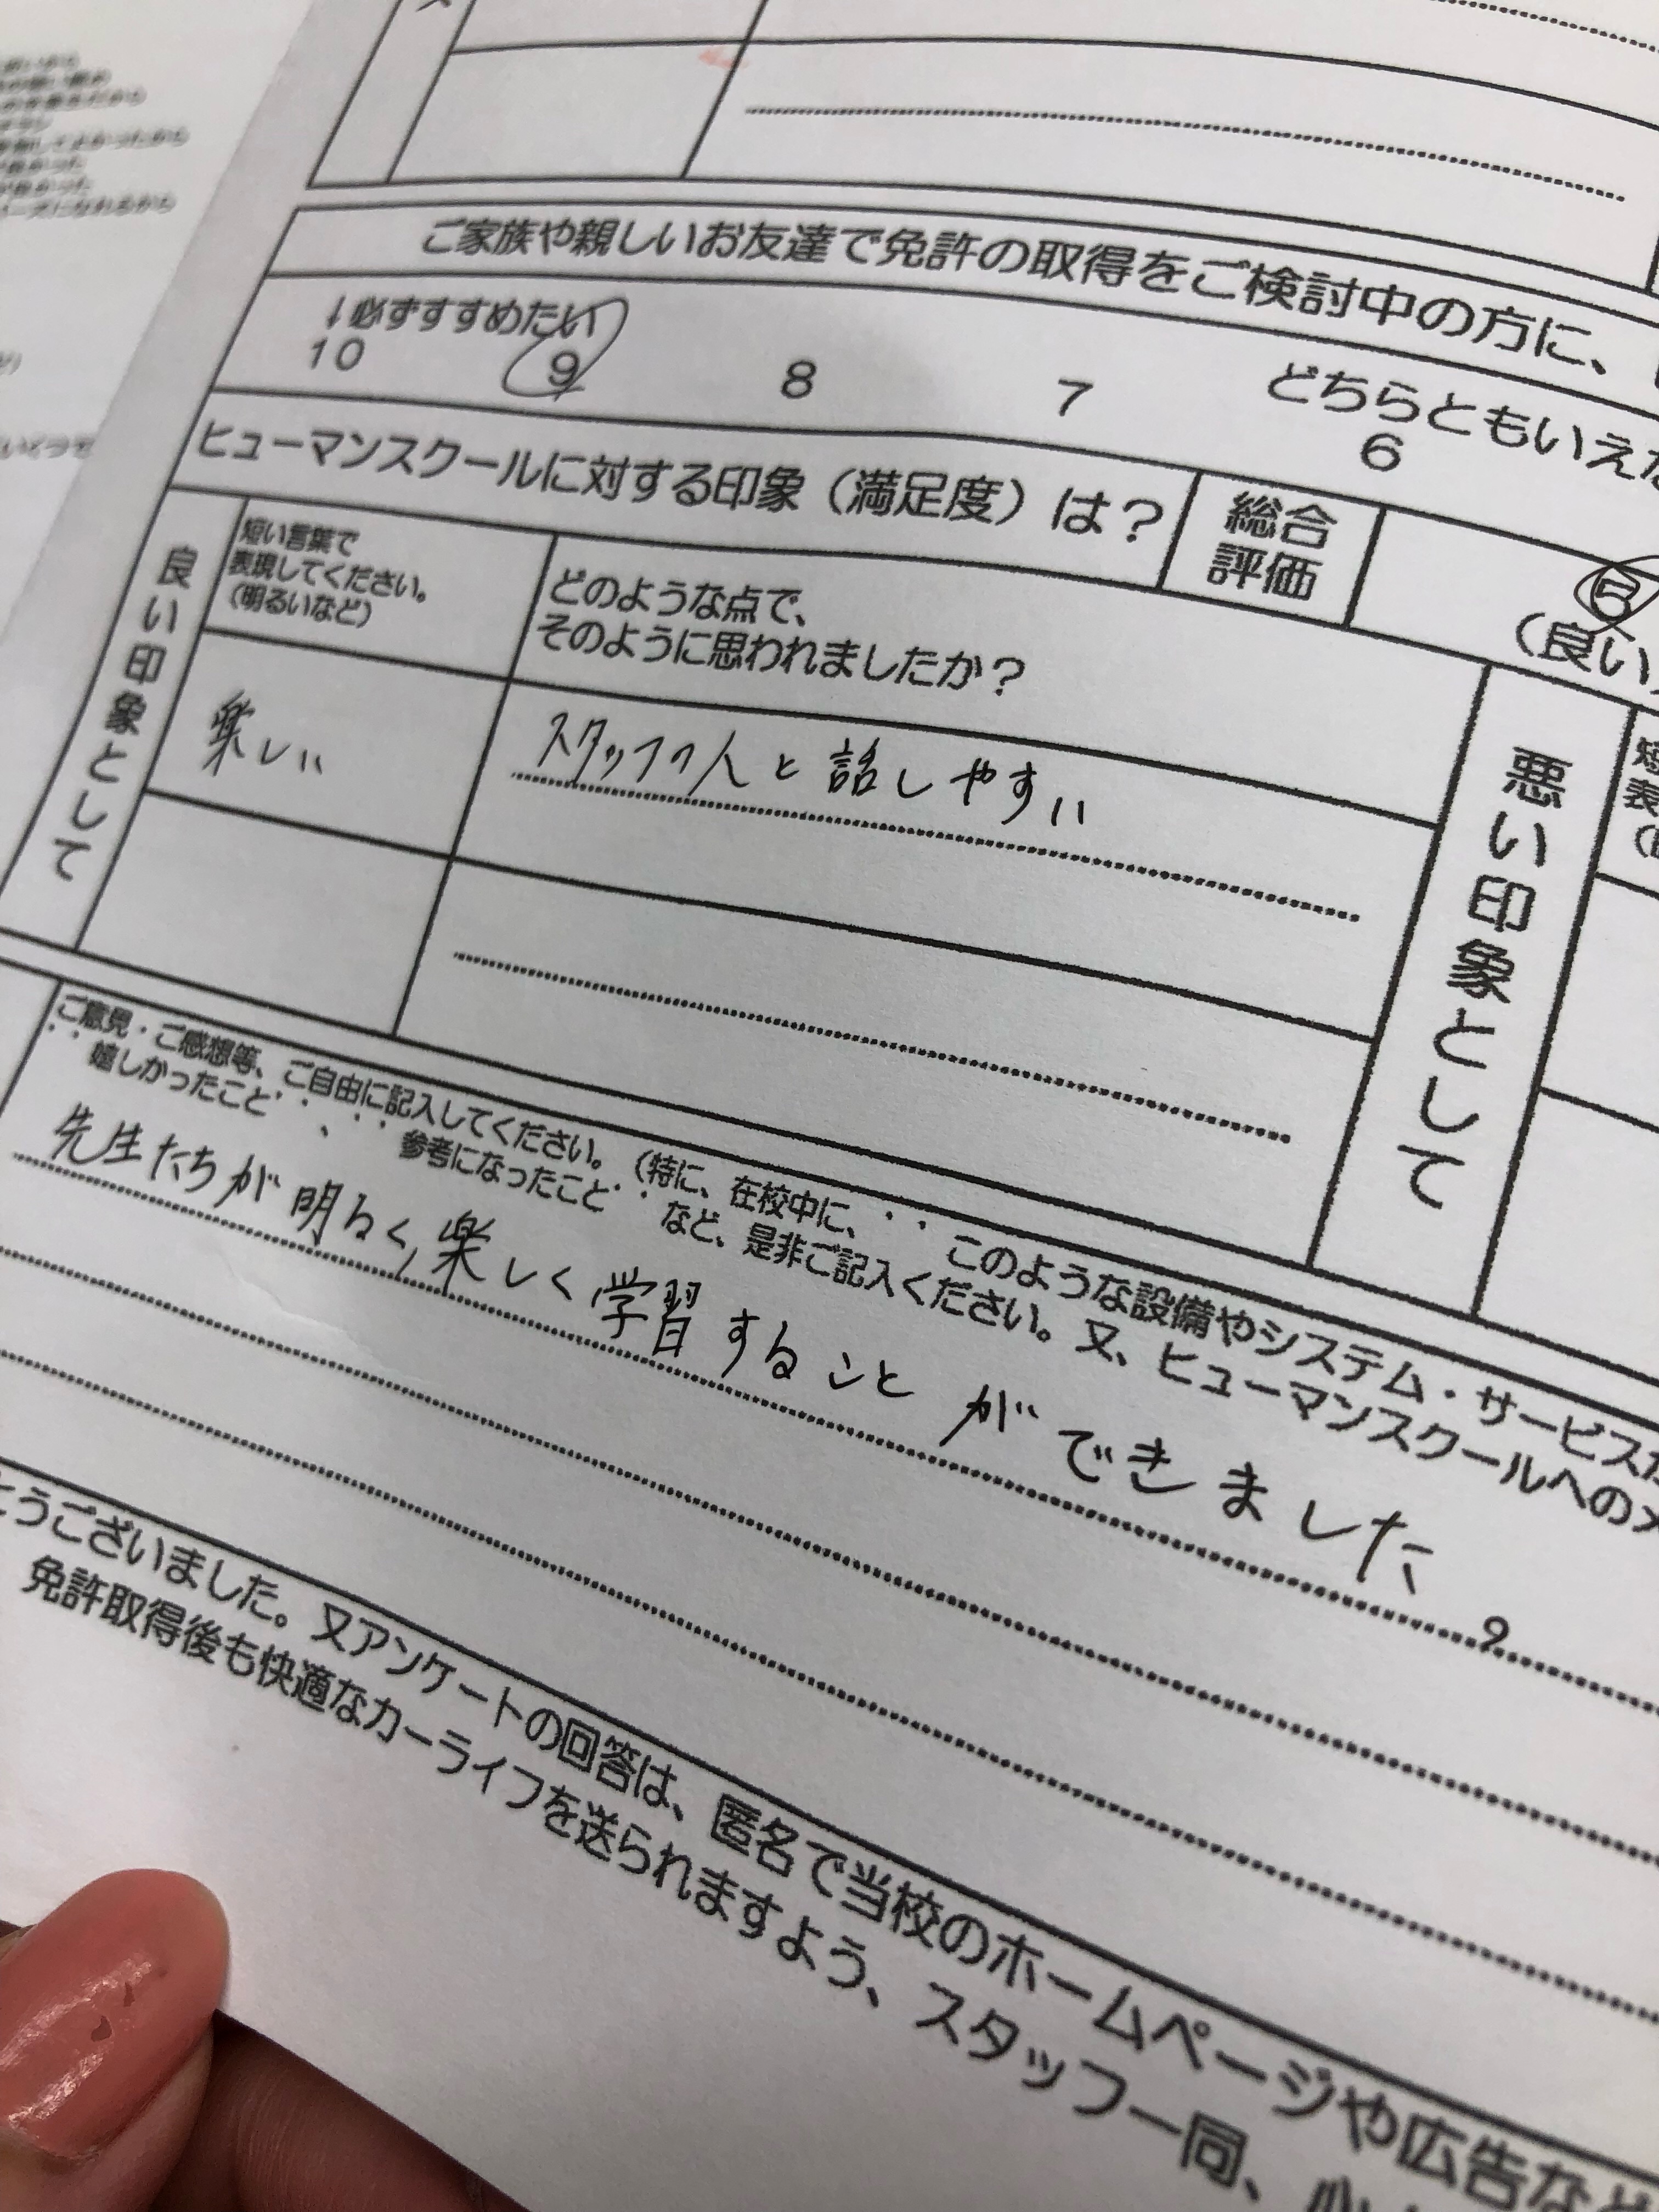 ご家族や親しいお友達で免許の取得をご検討中の方に、
↓必ずすすめたい
どちらともいえな
10 9 8 7 6
ヒューマンスクールに対する印象（満足度）は？
総合
評価
5
（良い
良い印象として
短い言葉で
表現してください。
（明るいなど）
どのような点で、
そのように思われましたか？
楽しい
スタッフの人と話しやすい
悪い印象として
短
表
ご意見・ご感想等、ご自由に記入してください。（特に、在校中に、・・このような設備やシステム・サービスが
・・嬉しかったこと・・、・・参考になったこと・・など、是非ご記入ください。又、ヒューマンスクールへのメ
先生たちが明るく、楽しく学習することができました。
とうございました。又アンケートの回答は、匿名で当校のホームページや広告など
免許取得後も快適なカーライフを送られますよう、スタッフ一同、心